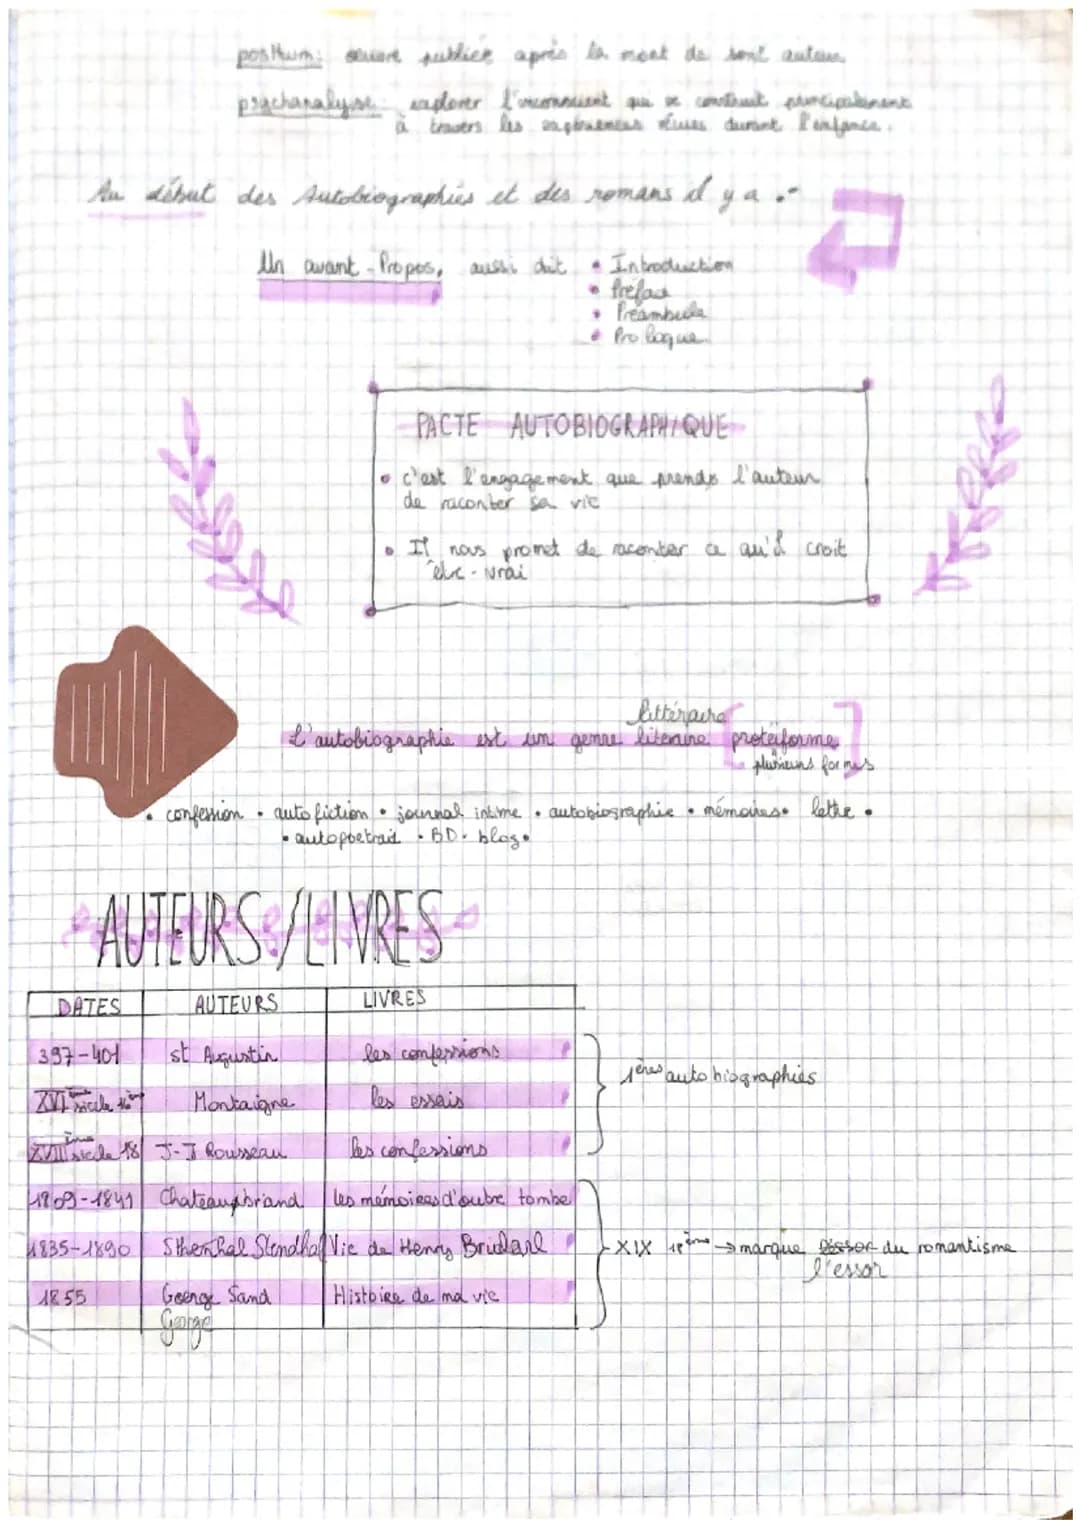 posthum: œuvre publiée après la mort de sont auteur
psychanalyse: explorer l'inconscient qui se construit principalement
à travers les expériences vécues durant l'enfance.
Au début des Autobiographies et des romans il y a :
Un avant-Propos, aussi dit • Introduction
• Préface
• Préambule
• Prologue
PACTE AUTOBIOGRAPHIQUE
• c'est l'engagement que prends l'auteur
de raconter sa vie
• Il nous promet de raconter ce qu'il croit
être-vrai
littéraire
L'autobiographie est un genre literaire [protéiforme]
plusieurs formes
• confession • autofiction • journal intime • autobiographie • mémoires • lettre •
• autoportrait • BD • blog •
AUTEURS/LIVRES
DATES AUTEURS LIVRES
397-401 st Augustin les confessions
XVI ème siecle 16ème Montaigne les essais
1ères autobiographies
XVIII ème siecle 18 J-J Rousseau les confessions
1809-1841 Chateaubriand les mémoires d'outre tombe
1835-1890 Sthenhal Stendhal Vie de Henry Brulard
XIX 19ème → marque essor du romantisme
l'essor
1855 Goerge Sand Histoire de ma vie
George